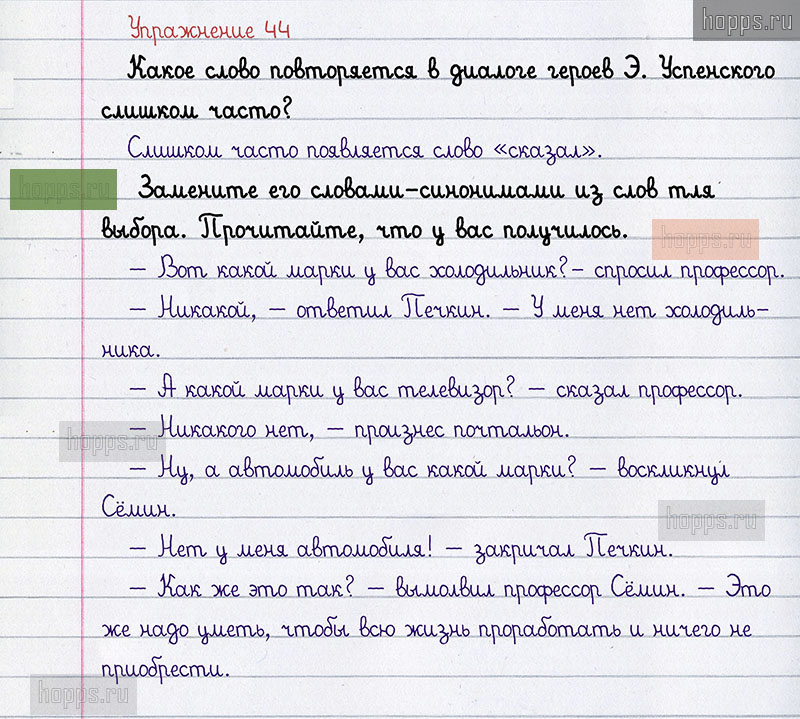 Упражнение 44
hopps.ru
Какое слово повторяется в диалоге героев Э. Успенского
слишком часто?
Слишком часто появляется слово «сказал».
hopps.ru
Замените его словами-синонимами из слов тля
выбора. Прочитайте, что у вас получилось.
hopps.ru
– Вот какой марки у вас холодильник?– спросил профессор.
– Никакой, – ответил Печкин. – У меня нет холодиль-
ника.
– А какой марки у вас телевизор? – сказал профессор.
– Никакого нет, – произнес почтальон.
hopps.ru
– Ну, а автомобиль у вас какой марки? – воскликнул
Сёмин.
hopps.ru
– Нет у меня автомобиля! – закричал Печкин.
– Как же это так? – вымолвил профессор Сёмин. – Это
же надо уметь, чтобы всю жизнь проработать и ничего не
приобрести.
hopps.ru